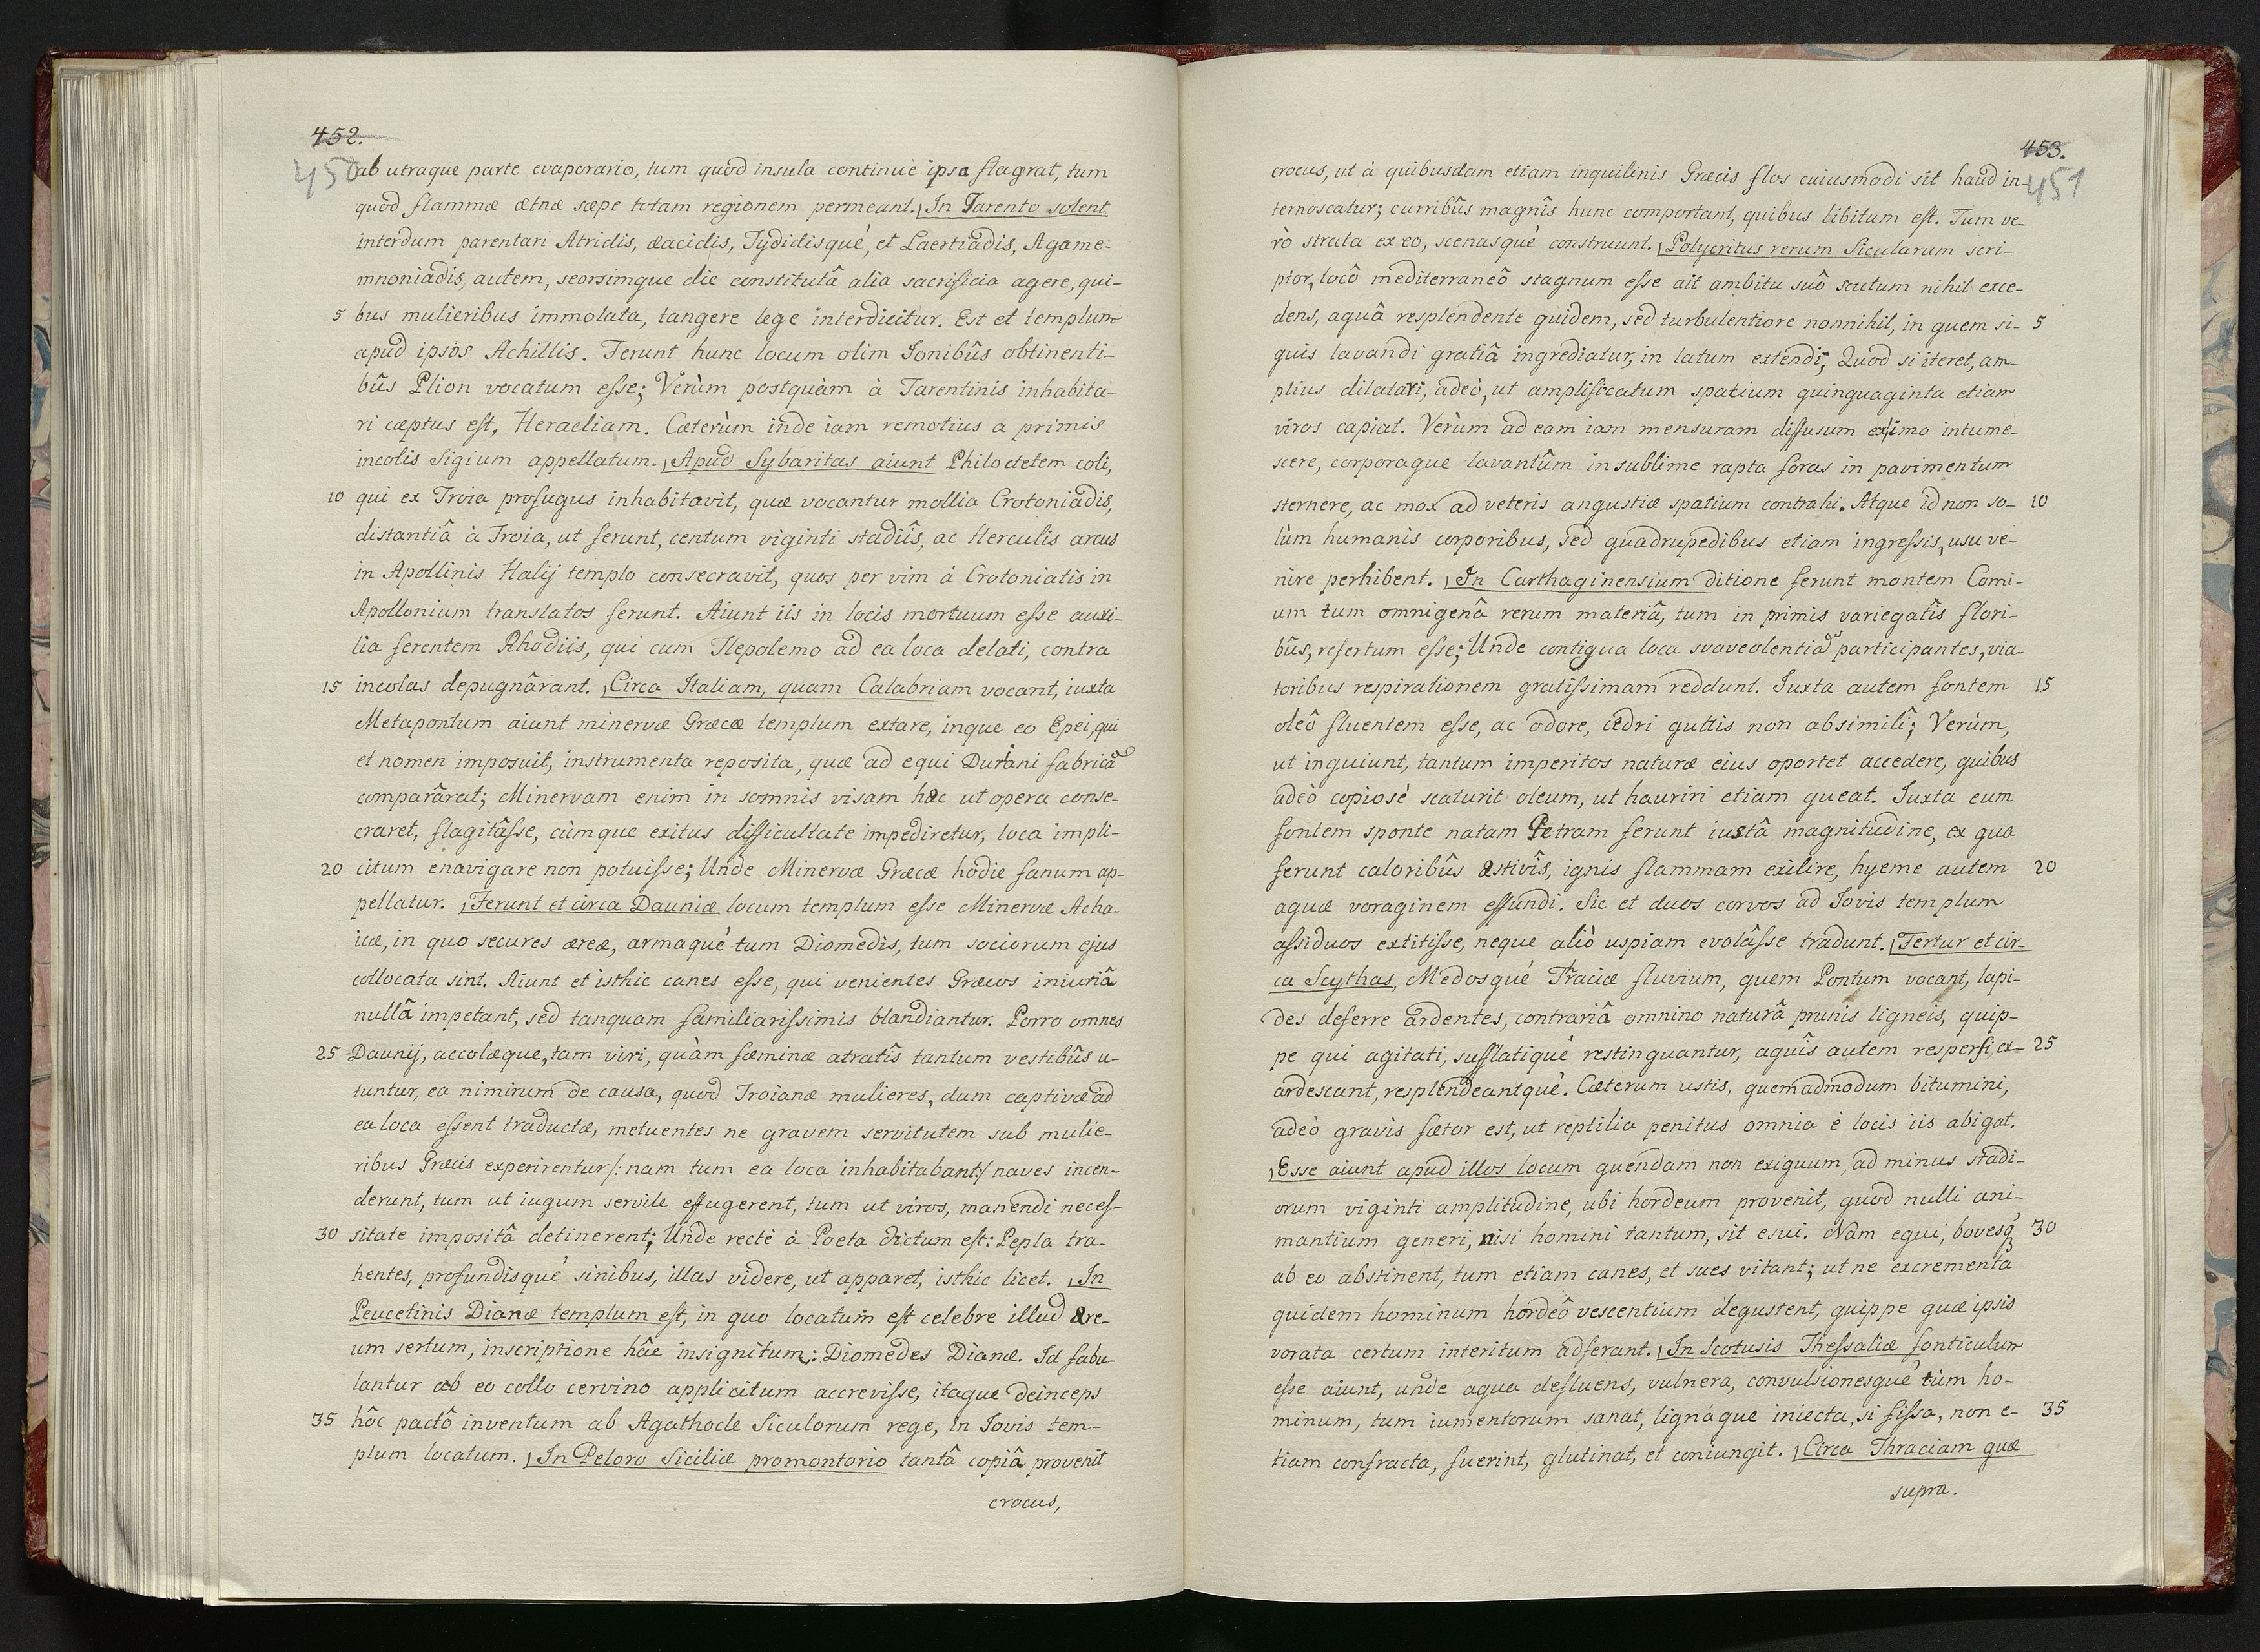 452.
450
ab utraque parte evaporario, tum quòd insula continuè ipsa flagrat, tum
quòd flammæ ætnæ sæpe totam regionem permeant. In Tarento solent
interdum parentari Atridis, æacidis, Tÿdidisquè, et Laertiadis, Agame-
mnoniadis, autem, seorsimque die constitutâ alia sacrificia agere, qui-
5 bus mulieribus immolata, tangere lege interdicitur. Est et templum
apud ipsos Achillis. Ferunt hunc locum olim Ionibûs obtinenti-
bûs Plion vocatum esse; Verùm postquàm à Tarentinis inhabita-
ri cæptus est, Heracliam. Cæterùm inde iam remotius a primis
incolis Sigium appellatum. Apud Sybaritas aiunt Philoctetem coli,
10 qui ex Troia profugus inhabitavit, quæ vocantur mollia Crotoniadis,
distantiâ à Troia, ut ferunt, centum viginti stadiîs, ac Herculis arcus
in Apollinis Halij templo consecravit, quos per vim à Crotoniatis in
Apollonium translatos ferunt. Aiunt iis in locis mortuum esse auxi-
lia ferentem Rhodiis, qui cum Tlepolemo ad ea loca delati, contra
15 incolas depugnârant. Circa Italiam, quam Calabriam vocant, iuxta
Metapontum aiunt minervæ Græcæ templum extare, inque eo Epei, qui
et nomen imposuit, instrumenta reposita, quæ ad equi Duriani fabricâ
comparârat; Minervam enim in somnis visam hæc ut opera conse-
craret, flagitâsse, cùmque exitus difficultate impediretur, loca impli-
20 citum enavigare non potuisse; Unde Minervæ Græcæ hodie fanum ap-
pellatur. Ferunt et circa Dauniæ locum templum esse Minervæ Acha-
icæ, in quo secures æreæ, armaquè tum Diomedis, tum sociorum ejus
collocata sint. Aiunt et isthic canes esse, qui venientes Græcos iniuriâ
nullâ impetant, sed tanquam familiarissimis blandiantur. Porro omnes
25 Daunij, accolæque, tam viri, quàm fæminæ atratîs tantum vestibûs u-
tuntur, ea nimirum de causa, quod Troianæ mulieres, dum captivæ ad
ea loca essent traductæ, metuentes ne gravem servitutem sub mulie-
ribus Græcis experirentur /: nam tum ea loca inhabitabant :/ naves incen-
derunt, tum ut iugum servile effugerent, tum ut viros, manendi neces-
30 sitate impositâ detinerent; Unde rectè à Poeta dictum est: Pepla tra-
hentes, profundisquè sinibus, illas videre, ut apparet, isthic licet. In
Peucetinis Dianæ templum est, in quo locatum est celebre illud ære-
um sertum, inscriptione hâc insignitum: Diomedes Dianæ. Id fabu-
lantur ab eo collo cervino applicitum accrevisse, itaque deinceps
35 hôc pactô inventum ab Agathocle Siculorum rege, in Iovis tem-
plum locatum. In Peloro Siciliæ promontorio tantâ copiâ provenit
crocus,
453.
451
crocus, ut à quibusdam etiam inquilinis Græcis flos cuiusmodi sit haud in-
ternoscatur; curribûs magnîs hunc comportant, quibus libitum est. Tum ve-
rò strata ex eo, scenasquè construunt. Polycritus rerum Sicularum scri-
ptor, locô mediterraneô stagnum esse ait ambitu suô scutum nihil exce-
dens, aquâ resplendente quidem, sed turbulentiore nonnihil, in quem si- 5
quis lavandi gratiâ ingrediatur, in latum extendi; Quod si iteret, am-
plius dilatari, adeò, ut amplificatum spatium quinquaginta etiam
viros capiat. Verùm ad eam iam mensuram diffusum ex imo intume-
scere, corporaque lavantûm in sublime rapta foras in pavimentum
sternere, ac mox ad veteris angustiæ spatium contrahi. Atque id non so- 10
lùm humanis corporibus, sed quadrupedibus etiam ingressis, usu ve-
nire perhibent. In Carthaginensium ditione ferunt montem Comi-
um tum omnigenâ rerum materiâ, tum in primis variegatîs flori-
bûs, refertum esse; Unde contigua loca suaveolentiæ participantes, via-
toribus respirationem gratissimam reddunt. Iuxta autem fontem 15
oleô fluentem esse, ac odore, cedri guttis non absimilî; Verùm,
ut inquiunt, tantum imperitos naturæ eius oportet accedere, quibus
adeò copiosè scaturit oleum, ut hauriri etiam queat. Iuxta eum
fontem sponte natam Petram ferunt iustâ magnitudine, ex qua
ferunt caloribûs æstivîs, ignis flammam exilire, hyeme autem 20
aquæ voraginem effundi. Sic et duos corvos ad Iovis templum
assiduos extitisse, neque aliò uspiam evolâsse tradunt. Fertur et cir-
ca Scythas, Medosquè Traciæ fluvium, quem Pontum vocant, lapi-
des deferre ardentes, contrariâ omnino naturâ prunis ligneis, quip-
pe qui agitati, sufflatiquè restinguantur, aquîs autem respersi ex- 25
ardescant, resplendeantquè. Cæterum ustis, quemadmodum bitumini,
adeò gravis fætor est, ut reptilia penitus omnia è locis iis abigat.
Esse aiunt apud illos locum quendam non exiguum, ad minus stadi-
orum viginti amplitudine, ubi hordeum provenit, quod nulli ani-
mantium generi, nisi homini tantum, sit esui. Nam equi, bovesq́ꝫ 30
ab eo abstinent, tum etiam canes, et sues vitant; ut ne excrementa
quidem hominum hordeô vescentium degustent, quippe quæ ipsis
vorata certum interitum adferant. In Scotusis Thessaliæ fonticulum
esse aiunt, unde aqua defluens, vulnera, convulsionesquè tùm ho-
minum, tum iumentorum sanat, lignáque iniecta, si fissa, non e- 35
tiam confracta, fuerint, glutinat, et coniungit. Circa Thraciam quæ
supra.